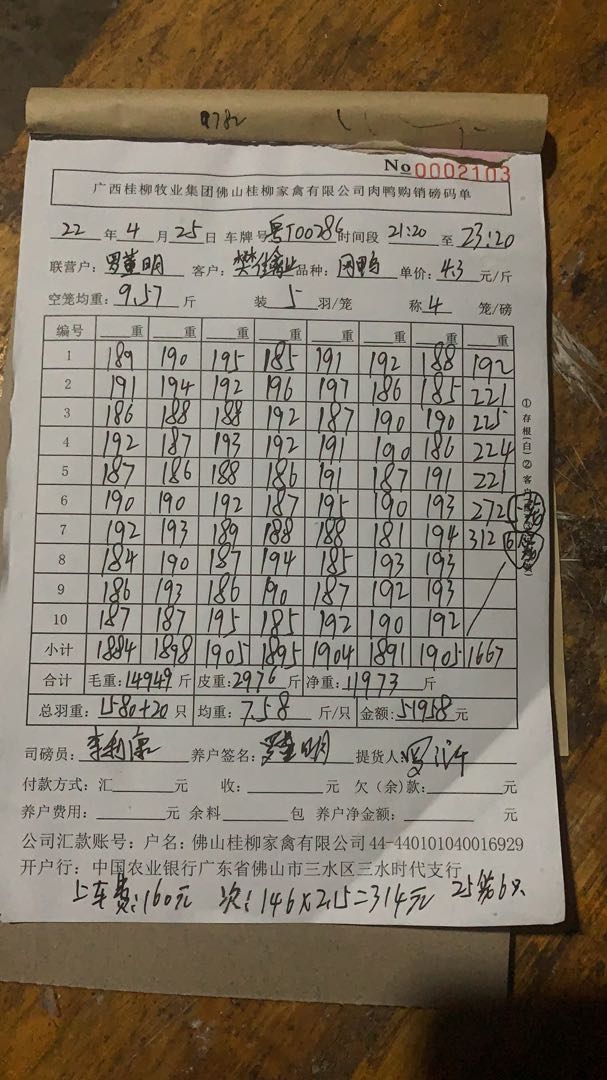 9782
No 0002103
广西桂柳牧业集团佛山桂柳家禽有限公司肉鸭购销磅码单
22年4月25日 车牌号 粤T00286 时间段 21:20 至 23:20
联营户: 罗董明 客户: 品种: 肉鸭 单价: 4.3 元/斤
空笼均重: 9.57 斤 装 5 羽/笼 称 4 笼/磅
编号 重 重 重 重 重 重 重 重
1 189 190 195 185 191 192 188 192
2 191 194 192 196 197 186 185 221
3 186 188 188 192 187 190 190 225
4 192 187 193 192 191 190 186 224
5 187 186 188 186 191 187 191 221
6 190 190 192 187 195 190 193 272
7 192 193 189 188 188 181 194 312
8 184 190 187 194 185 193 193
9 186 193 186 190 187 192 193
10 187 187 195 185 192 190 192
小计 1884 1898 1905 1895 1904 1891 1905 1667
合计 毛重: 14949 斤 皮重: 2976 斤 净重: 11973 斤
总羽重: 1580+20 只 均重: 7.58 斤/只 金额: 51958 元
司磅员: 李利康 养户签名: 罗董明 提货人:
付款方式: 汇 元 收: 元 欠(余)款: 元
养户费用: 元 余料 包 养户净金额: 元
公司汇款账号: 户名: 佛山桂柳家禽有限公司 44-440101040016929
开户行: 中国农业银行广东省佛山市三水区三水时代支行
上车费: 160元 次: 146×2.15=314元 25笼6只
①存根(白)②客